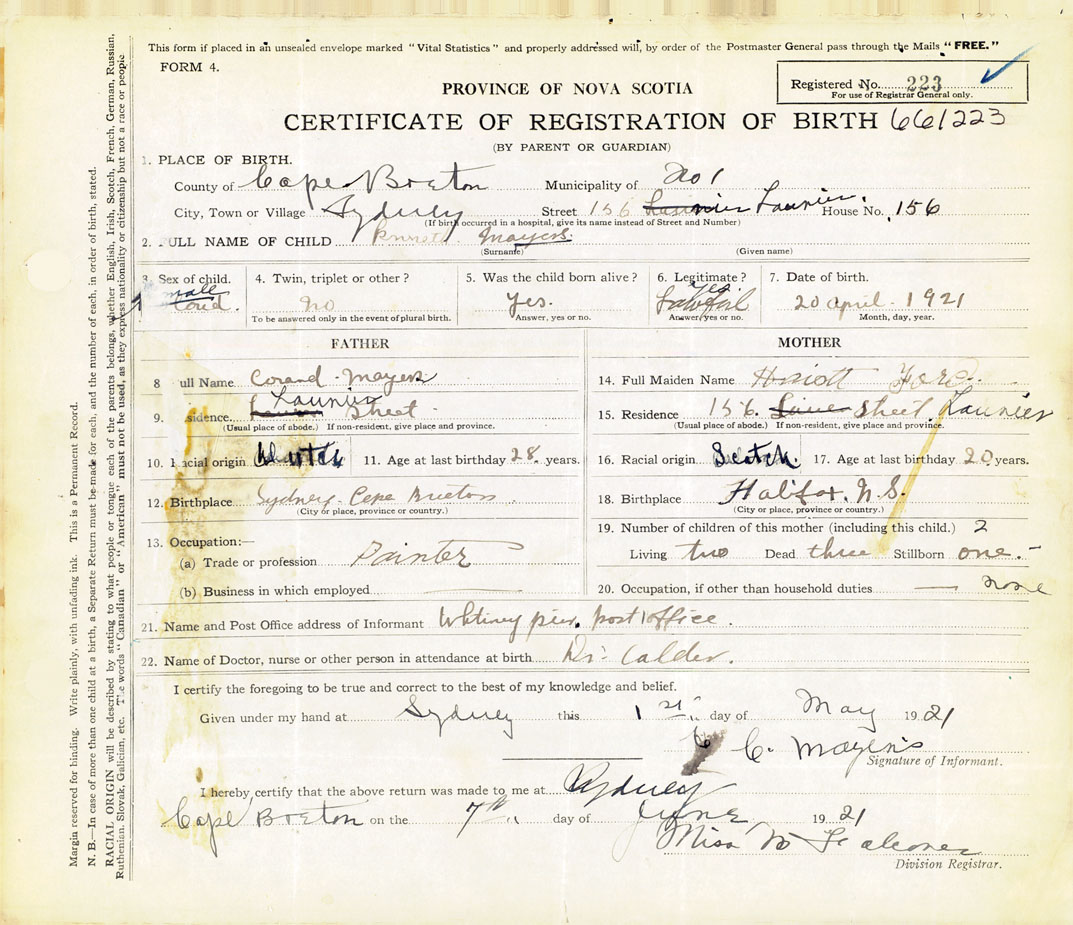 This form if placed in an unsealed envelope marked "Vital Statistics" and properly addressed will, by order of the Postmaster General pass through the Mails "FREE."
FORM 4.
PROVINCE OF NOVA SCOTIA
Registered No. 223
For use of Registrar General only.
CERTIFICATE OF REGISTRATION OF BIRTH 661223
(BY PARENT OR GUARDIAN)
1. PLACE OF BIRTH.
County of Cape Breton Municipality of No 1
City, Town or Village Sydney Street 156 Laurier House No. 156
(If birth occurred in a hospital, give its name instead of Street and Number)
2. FULL NAME OF CHILD Mayers
(Surname) (Given name)
3. Sex of child. 4. Twin, triplet or other? 5. Was the child born alive? 6. Legitimate? 7. Date of birth.
male No Yes. Yes. Lawful 20 April 1921
To be answered only in the event of plural birth. Answer, yes or no. Answer, yes or no. Month, day, year.
FATHER MOTHER
8 ull Name Corand Mayers
9. sidence Laurier Street
(Usual place of abode.) If non-resident, give place and province.
10. Racial origin 11. Age at last birthday 28 years.
12. Birthplace Sydney Cepe Breton
(City or place, province or country.)
13. Occupation:—
(a) Trade or profession Painter
(b) Business in which employed
14. Full Maiden Name Hariott
15. Residence 156 Street Laurier
(Usual place of abode.) If non-resident, give place and province.
16. Racial origin Scotch. 17. Age at last birthday 20 years.
18. Birthplace Halifax. N.S.
(City or place, province or country.)
19. Number of children of this mother (including this child.) 2
Living two Dead three Stillborn one.
20. Occupation, if other than household duties none
21. Name and Post Office address of Informant Whitney pier. post office.
22. Name of Doctor, nurse or other person in attendance at birth Dr. Calder.
I certify the foregoing to be true and correct to the best of my knowledge and belief.
Given under my hand at Sydney this 1 st day of May 1921
C. Mayers
Signature of Informant.
I hereby certify that the above return was made to me at Sydney
Cape Breton on the 7th day of June 1921
Miss
Division Registrar.
Margin reserved for binding. Write plainly, with unfading ink. This is a Permanent Record.
N. B.—In case of more than one child at a birth, a Separate Return must be made for each, and the number of each, in order of birth, stated.
RACIAL ORIGIN will be described by stating to what people or tongue each of the parents belongs, whether English, Irish, Scotch, French, German, Russian,
Ruthenian, Slovak, Galician, etc. The words "Canadian" or "American" must not be used, as they express nationality or citizenship but not a race or people